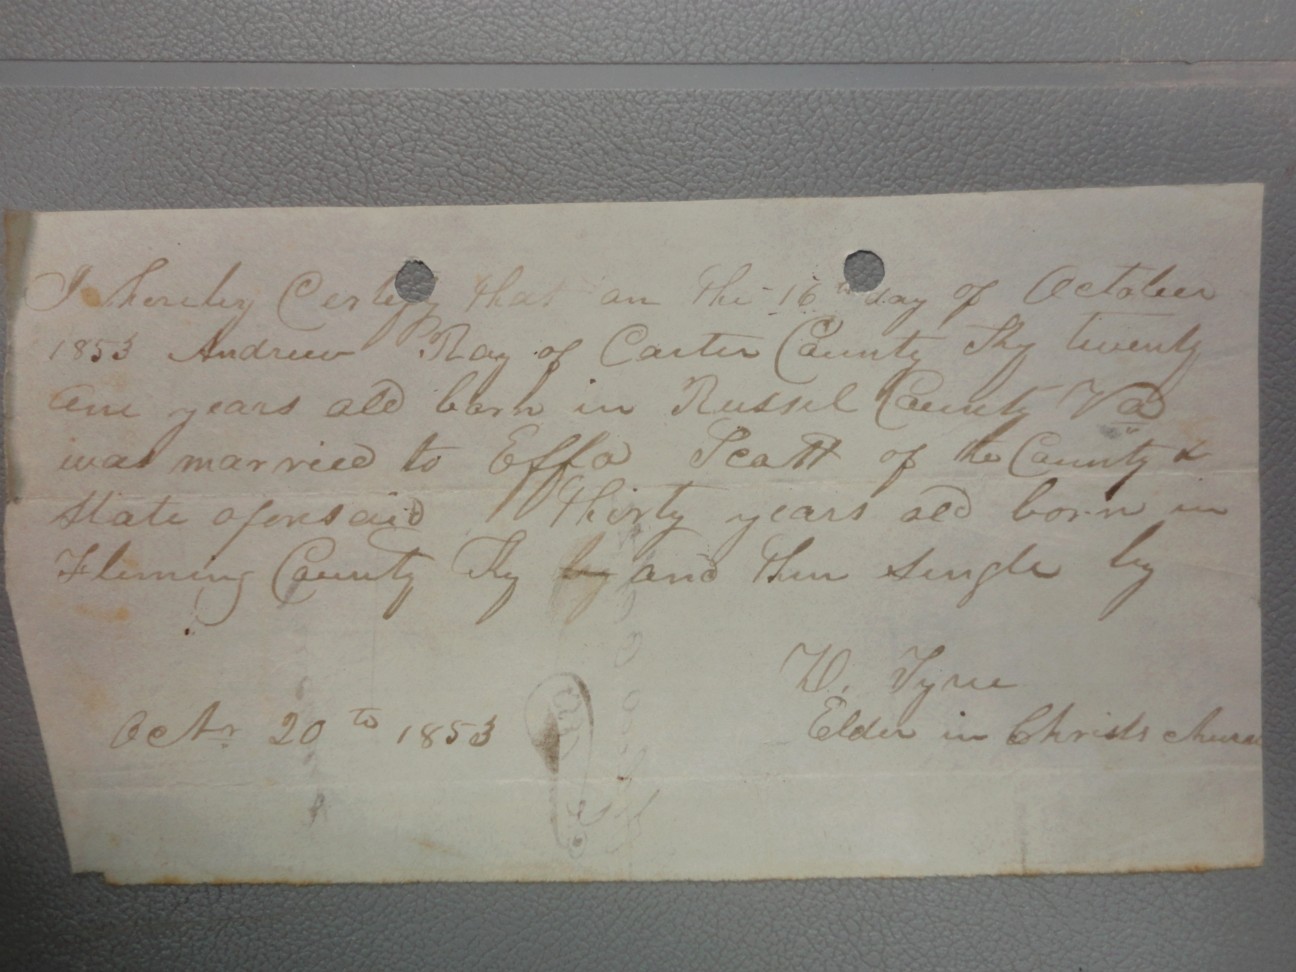 I hereby Certify that on the 16th day of October
1853 Andrew Ray of Carter County Ky twenty
one years old born in Russel County Va
was married to Effa Scott of the County &
State aforesaid Thirty years old born in
Fleming County Ky by and then single by
W. Tyree
Octr 20th 1853
Elder in Christs Church